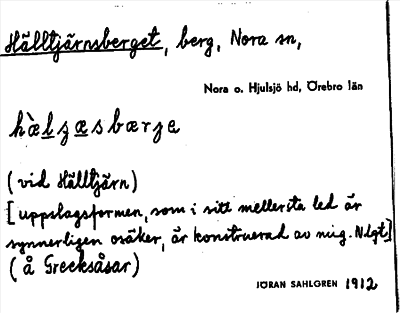 Hälltjärnsberget, berg, Nora sn,
Nora o. Hjulsjö hd, Örebro län
hæ̀lʒæsbærʒe
(vid Hälltjärn)
[uppslagsformen, som i sitt mellersta led är
synnerligen osäker, är konstruerad av mig. Ndgt]
(å Grecksåsar)
JÖRAN SAHLGREN 1912